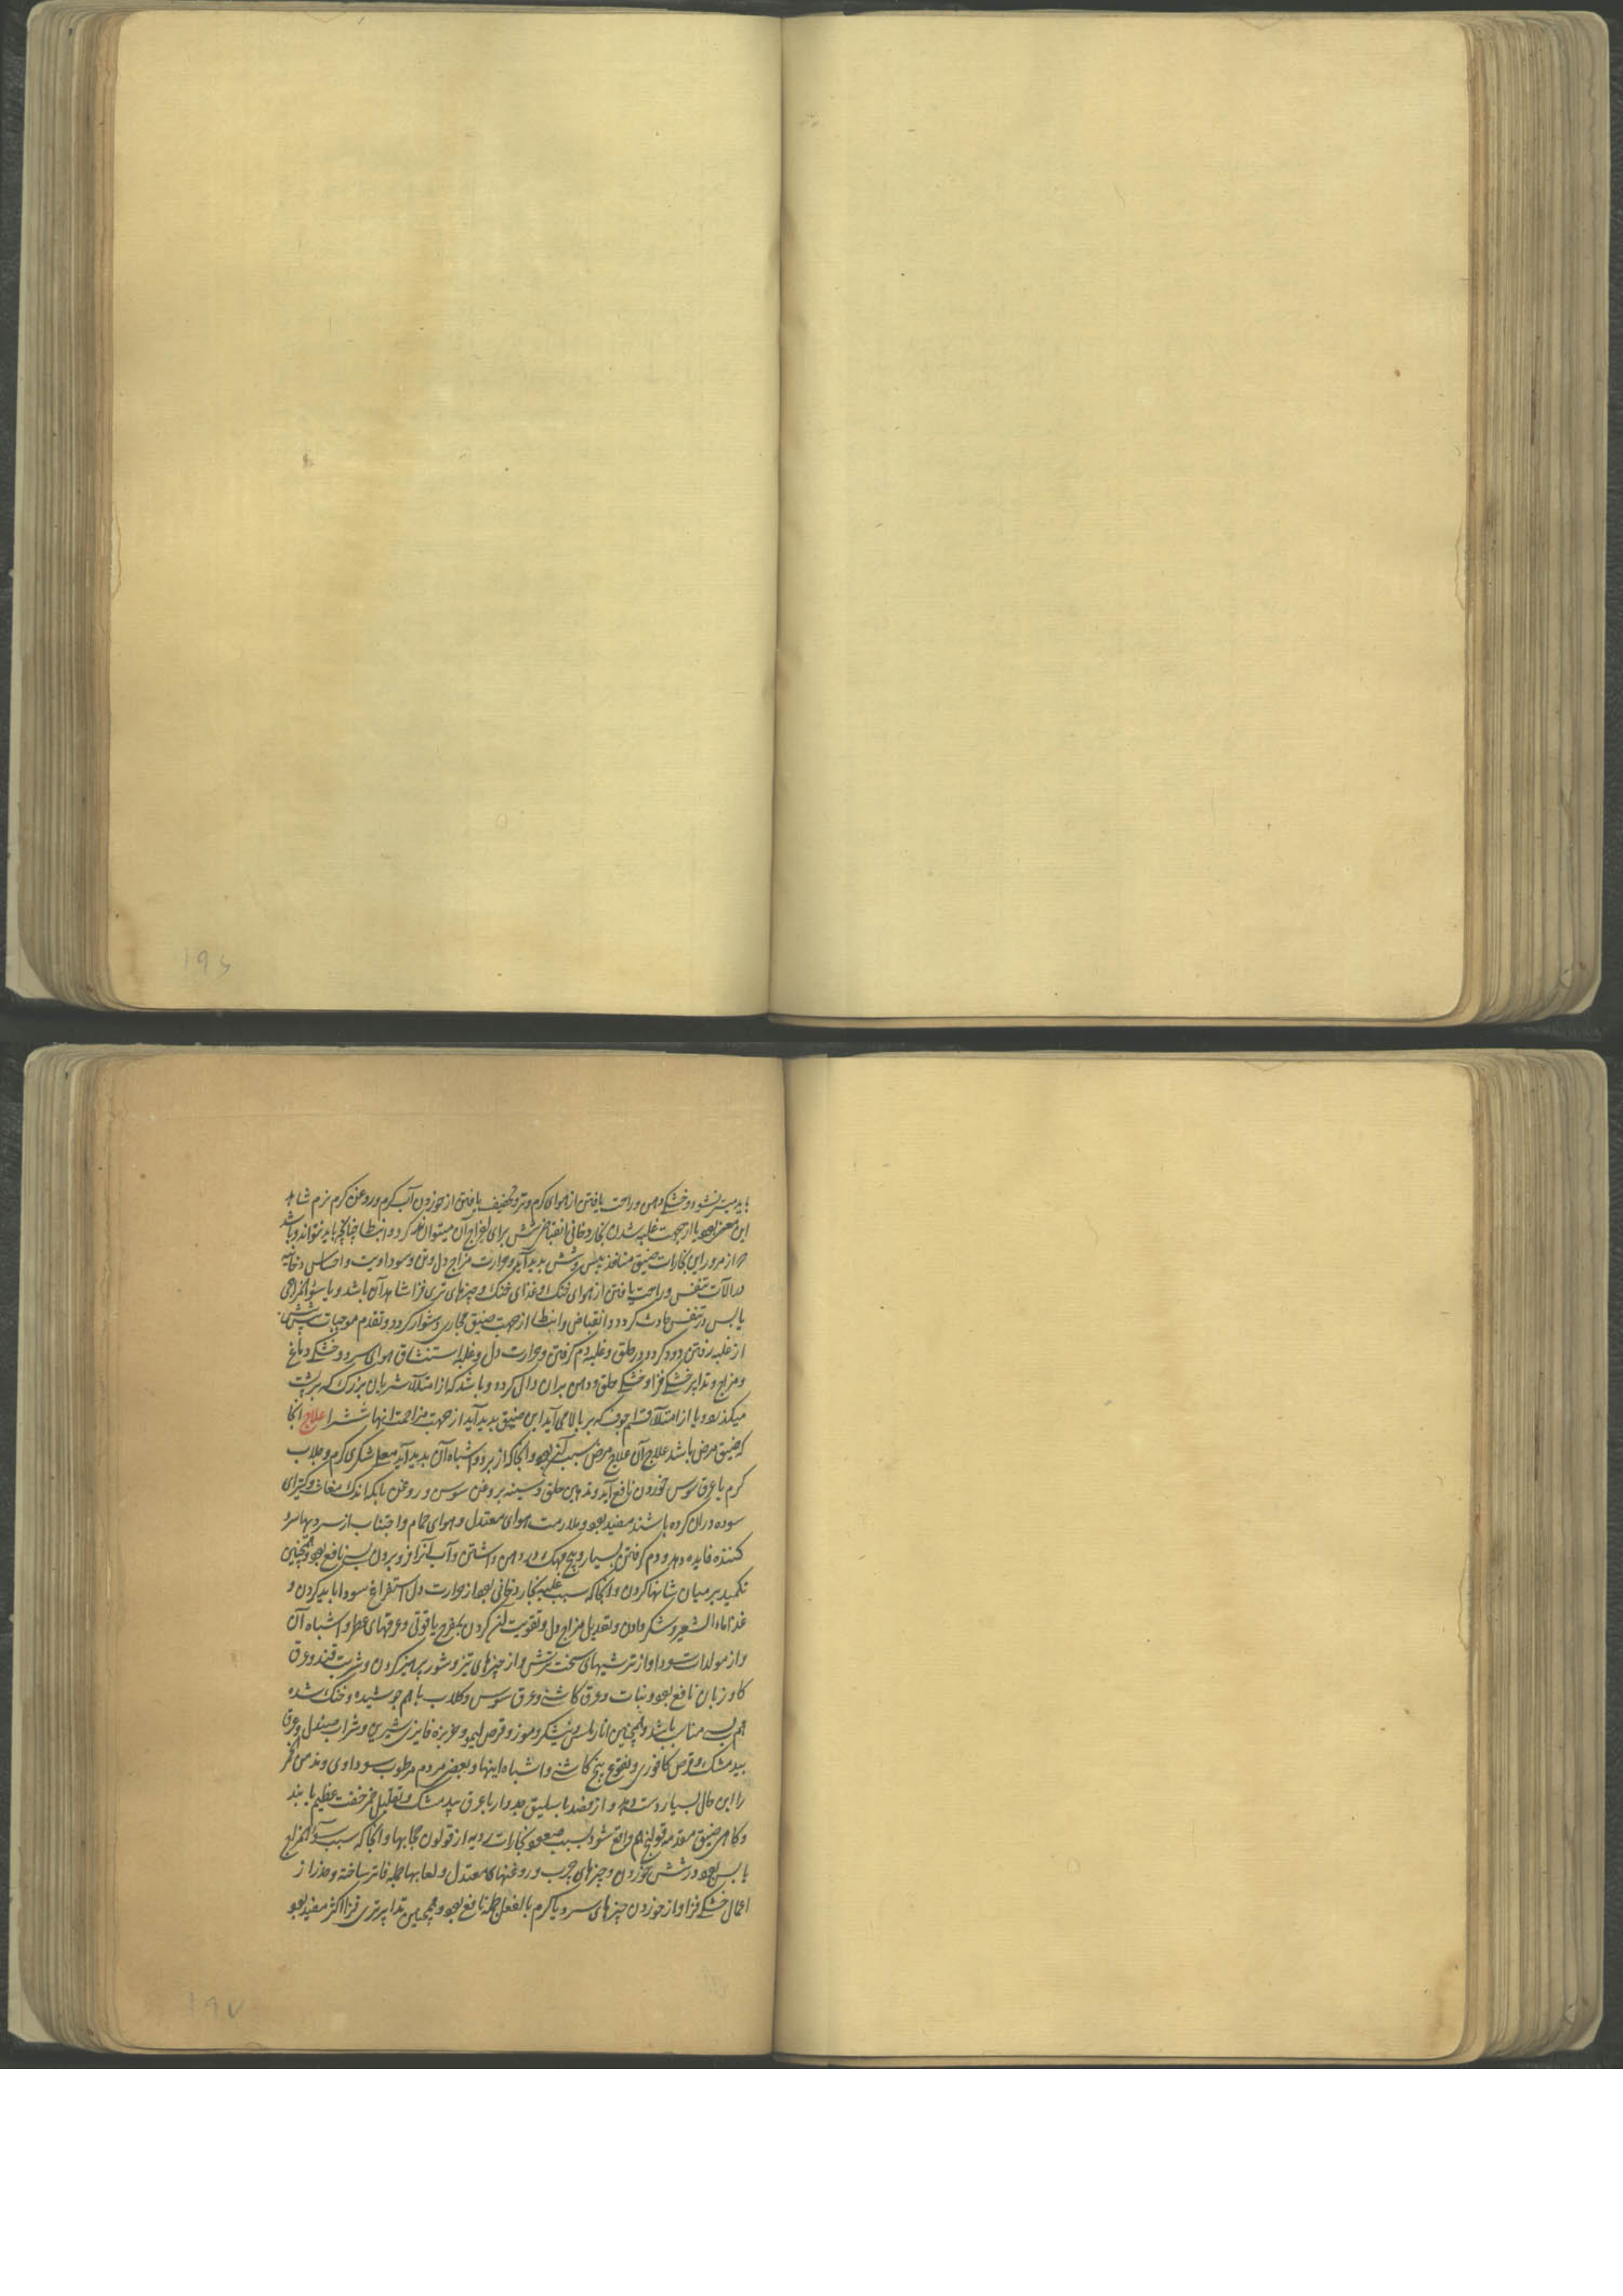 ۱۹۶
باید میسر نشود و خشکی دهن و راحت یافتن از هوای کرم و تر و تخفیف یافتن از خوردن آب کرم و روغن کرم نرم شاهد
این معنی بود یا از جهت غلبه شدن بخار دخانی انقباض شش برای اخراج آن میتواند کرد و انبساط چنانچه باید نتواند و باشد
که از مرور این بخارات ضیق منافذ یبس شش پدید آید و حرارت مزاج دل و تن و سوداویت و احساس دخانیه
در آلات تنفس و راحت یافتن از هوای خنک و غذای خنک و چیزهای تری فزا شاهد آن باشد و یا سوء المزاجی
یابس در تنفس حادث کردد و انقباض و انبساط از جهت ضیق مجاری دشوار کردد و تقدم موجبات پیش
از غلبه رفتن دود و کرد در حلق و غلبه دم کرفتن و حرارت دل و غلبه استنشاق هوای سرد و خشکی دماغ
و مزاج و تدابیر خشکی فزا و خشکی حلق و دهن بران دال کردد و باشد که از امتلاء شریان بزرک که بر پشت
میکذرد و یا از امتلاء اجوف که بر بالا می آید این ضیق پدید آید از جهت مزاحمت آنها شش را علاج آنجا
که ضیق مرض باشد علاج آن علاج مرض سبب کنی بود و آنجا که از برد و اشباه آن پدید آید معلی شکری کرم و جلاب
کرم با عرق سوس خوردن نافع آید و تدهین حلق و سینه بروغن سوسن و روغن بابکه اندک مغاث و کتیرای
سوده در ان کرده باشند مفید بود و ملازمت هوای معتدل و هوای حمام و اجتناب از سردیها سرد
کننده فایده دهد و دم کرفتن بسیار و بیخ مهک در دهن داشتن و آب آنرا فرو بردن بسی نافع بود و همچنین
تکمید بر میان شانها کردن و آنجا که سبب غلبه بخار دخانی بود از حرارت دل استفراغ سودا باید کردن و
غذا ماء الشعیر و شکر دادن و تعدیل مزاج دل و تقویت کردن بمفرح یاقوتی و عرقهای عطر و اشباه آن
و از مولدات سودا و از ترشیهای سخت ترش و از چیزهای تیز و شور پرهیز کردن و شربت قند و عرق
کاو زبان نافع بود و نبات و عرق کاشنی و عرق سوس و کلاب با هم جوشیده و خنک شده
هم بسی مناسب باشد و همچنین انار ملس و نیشکر و موز و قرص لیمو و خربزه فایزی شیرین و شراب صندل و عرق
بید مشک و قرص کافوری و نقوع بیخ کاشنی و اشباه اینها و بعضی مردم مرطوب سوداوی و مدمن الخمر
را این حال بسیار دست دهد و از فصد باسلیق جدوار با عرق بید مشک و تقلیل خمر خفت عظیم یابند
و کاهی ضیق مقدمه قولنج هم واقع شود بسبب صعود بخارات ردیه از قولون بحجابها و آنجا که سبب سوء المزاج
یابس بود در شش خوردن چیزهای چرب و روغنهای معتدل و لعابها جمله فاتر ساخته و حذر از
اعمال خشکی فزا و از خوردن چیزهای سرد یا کرم بالفعل جمله نافع بود و همچنین تدابیر تری فزا اکثر مفید بود
۱۹۷